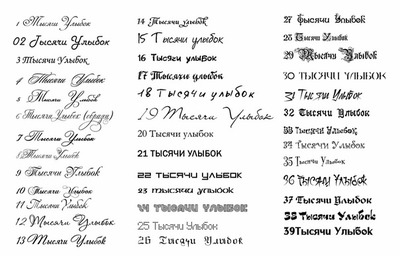 1 Тысячи Улыбок
02 Тысячи Улыбок
3 Тысячи Улыбок
4 Тысячи Улыбок
5 Тысячи Улыбок
6 Тысячи Улыбок (образец)
7 Тысячи Улыбок
8 Тысячи Улыбок
9 Тысячи Улыбок
10 Тысячи Улыбок
11 Тысячи Улыбок
12 Тысячи Улыбок
13 Тысячи Улыбок
14 Тысячи улыбок
15 Тысячи улыбок
16 Тысячи улыбок
17 Тысячи улыбок
18 Тысячи улыбок
19 Тысячи Улыбок
20 Тысячи Улыбок
21 ТЫСЯЧИ УЛЫБОК
22 ТЫСЯЧИ УЛЫБОК
23 тысячи улыбок
24 ТЫСЯЧИ УЛЫБОК
25 Тысячи Улыбок
26 Тысячи Улыбок
27 Тысячи Улыбок
28 Тысячи Улыбок
29 Тысячи Улыбок
30 ТЫСЯЧИ УЛЫБОК
31 Тысячи Улыбок
32 Тысячи Улыбок
33 Тысячи Улыбок
34 Тысячи Улыбок
35 Тысячи Улыбок
36 Тысячи Улыбок
37 Тысячи Улыбок
38 Тысячи Улыбок
39Тысячи Улыбок